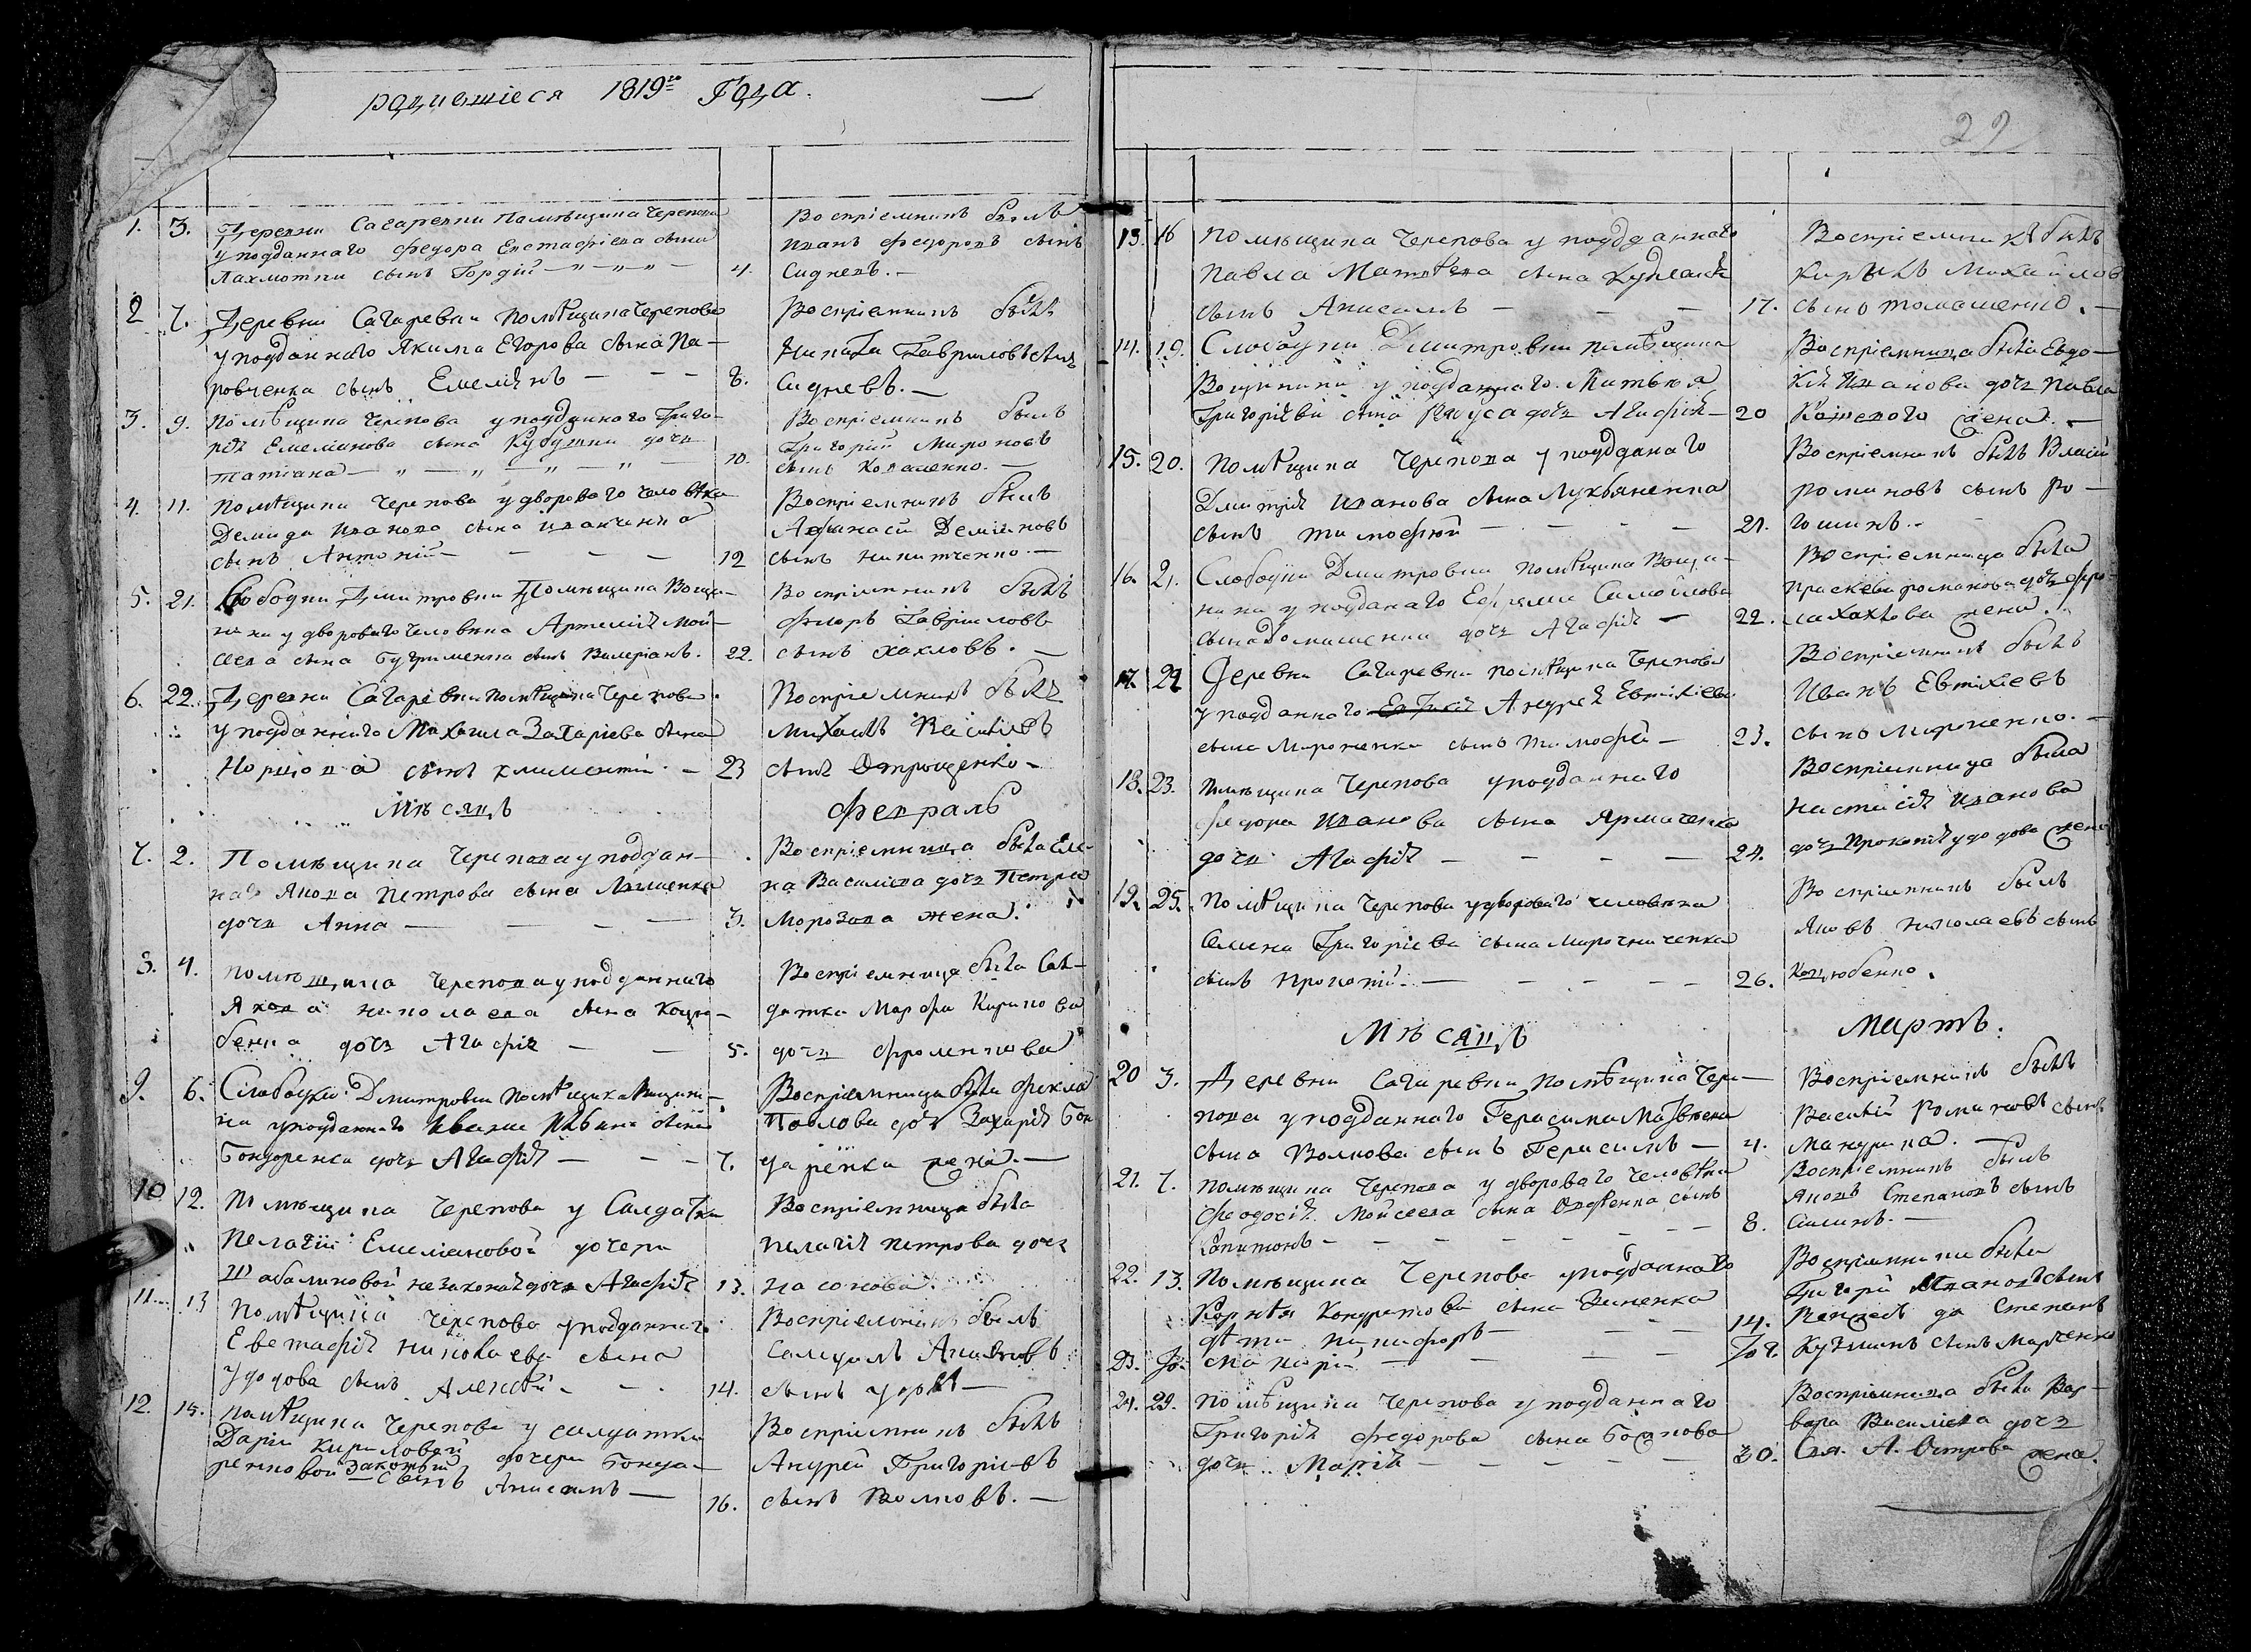 родившіеся 1819го Года.
29
1. 3. Деревни Сагаревки Помѣщика Черепова
уподданнаго Федора Евстафіева сына
Лахмотки сынъ Гордій
4.
Воспріемникъ былъ
Иванъ Федоровъ сынъ
Сидневъ.
2 7. Деревни Сагаревки Помѣщика Черепова
уподданнаго Якима Егорова сына Па-
ровченка сынъ Емеліянъ
8.
Воспріемникъ былъ
Гавриловъ сынъ
Сидневъ.
3. 9. Помѣщика Черепова уподданного Григо-
рія Емеліанова сына дочь
татіана
10.
Воспріемникъ былъ
Григорій Мироновъ
сынъ Коваленко.
4. 11. Помѣщика Черепова удвороваго человѣка
Демида Иванова сына Иванченка
сынъ Антоній
12
Воспріемникъ былъ
Афанасій Деміяновъ
сынъ никитченко.
5. 21. Слободки Дмитровки Помѣщика Вощи-
нина у двороваго человѣка Артемія Мой-
сеева сына Бугрименка сынъ Валеріанъ.
22.
Воспріемникъ былъ
Федоръ Гавріиловъ
сынъ Хахловъ.
6. 22. Деревни Сагаревки помѣщика Черепова
уподданнаго Михаила Захаріева сына
сынъ климентій
23
Воспріемникъ былъ
михаилъ Василіевъ
сынъ Отрощенко
Мѣсяцъ
февраль
7. 2. Помѣщика Черепова уподдан-
наго Якова Петрова сына Ляшенка
дочь Анна
3.
Воспріемница была Еле-
на Василіева дочь Петра
Морозова жена.
8. 4. помѣщика Черепова уподданнаго
Якова николаева сына Коцю-
бенка дочь Агафія
5.
Воспріемница была Сал-
датка Марфа Кирилова
дочь фроленкова
9. 6. Слободки Дмитровки Помѣщика Вощини-
на уподданнаго Ивана Ивана сына
Бондаренка дочь Агафія
7.
Воспріемница была Фекла
Павлова дочь Захарія Бон
даренка жена.
10 12. Помѣщика Черепова у Салдатки
Пелагіи Емеліановой дочери
Шабалиновой незаконая дочь Агафія
13.
Воспріемница была
пелагія петрова дочь
насонова.
11. 13 Помѣщика Черепова уподданнаго
Евстафія николаева сына
Удодова сынъ Алексѣй
14.
Воспріемникъ былъ
сынъ
12. 15. помѣщика Черепова у салдатки
Даріи Кириловой дочери Бонда-
ренковой законый сынъ Анисимъ
16.
Воспріемникъ былъ
Андрей Григоріевъ
сынъ Волковъ.
13. 16 помѣщика Черепова у подданнаго
Павла Матвѣева сына
сынъ Анисимъ
17.
Воспріемникъ былъ
Михайловъ
сынъ томашенко.
14. 19. Слободки Дмитровки помѣщика
Вощинина уподданнаго Матвѣя
Григоріева сына дочь Агафія
20
Воспріемница была Евдо-
кія Иванова дочь Павла
жена.
15. 20. Помѣщика Черепова у подданаго
Дмитрія Иванова сына Лукьяненка
сынъ тимофѣй
21.
Воспріемникъ былъ Власій
романовъ сынъ ро-
гошинъ.
16. 21. Слободки Дмитровки помѣщика Вощи-
нина у подданаго Ефрема Самойлова
сына Домашенки дочь Агафія
22.
Воспріемница была
праскевія романова дочь
Хахлова жена.
17. 22 Деревни Сагаревки помѣщика Черепова
уподданнаго Андрея Евтихіева
сына Мироненка сынъ тимофѣй
23.
Воспріемникъ былъ
Иванъ Евтіхіевъ
сынъ Мироненко.
18. 23. Помѣщика Черепова уподданнаго
Федора Иванова сына Ярмаченка
дочь Агафія
24.
Воспріемница была
настасія Иванова
дочь Прокопія удодова жена
19. 25. Помѣщика Черепова удвороваго человѣка
Семена Григоріева сына Мирочниченка
сынъ прокопій
26.
Воспріемникъ былъ
Яковъ николаевъ сынъ
Коцюбенко.
Мѣсяцъ
мартъ.
20 3. Деревни Сагаревки помѣщика Чере-
пова уподданнаго Герасима Матвѣева
сына Волкова сынъ Герасимъ
4.
Воспріемникъ былъ
Василій Романовъ сынъ
Мандрика.
21. 7. помѣщика Черепова у двороваго человѣка
Феодосія Мойсеева сына сынъ
Капитонъ
8.
Воспріемникъ былъ
Яковъ Степановъ сынъ
Силинъ.
22. 13. Помѣщика Черепова уподданнаго
Корнѣя Кондратова сына Зиненка
дѣти никифоръ
14.
Воспріемники были
Григорій Ивановъ сынъ
да Степанъ
23.
Кузминъ сынъ Марченко
24. 29. помѣщика Черепова уподданнаго
Григорія Федорова сына Божкова
дочь Марія
30.
Воспріемница была Вар-
вара Василіева дочь
Свя. А. Острова жена.